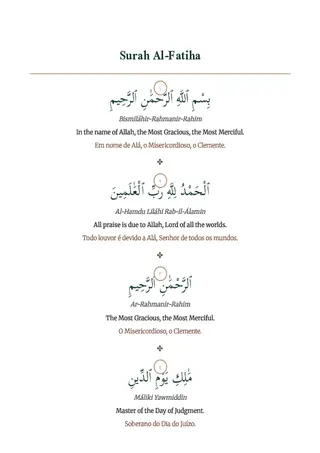 Surah Al-Fatiha
١
بِسْمِ ٱللَّهِ ٱلرَّحْمَٰنِ ٱلرَّحِيمِ
Bismiláhir-Rahmanir-Rahim
In the name of Allah, the Most Gracious, the Most Merciful.
Em nome de Alá, o Misericordioso, o Clemente.
٢
ٱلْحَمْدُ لِلَّهِ رَبِّ ٱلْعَٰلَمِينَ
Al-Hamdu Liláhi Rab-il-Álamin
All praise is due to Allah, Lord of all the worlds.
Todo louvor é devido a Alá, Senhor de todos os mundos.
٣
ٱلرَّحْمَٰنِ ٱلرَّحِيمِ
Ar-Rahmanir-Rahim
The Most Gracious, the Most Merciful.
O Misericordioso, o Clemente.
٤
مَٰلِكِ يَوْمِ ٱلدِّينِ
Máliki Yawmiddin
Master of the Day of Judgment.
Soberano do Dia do Juízo.